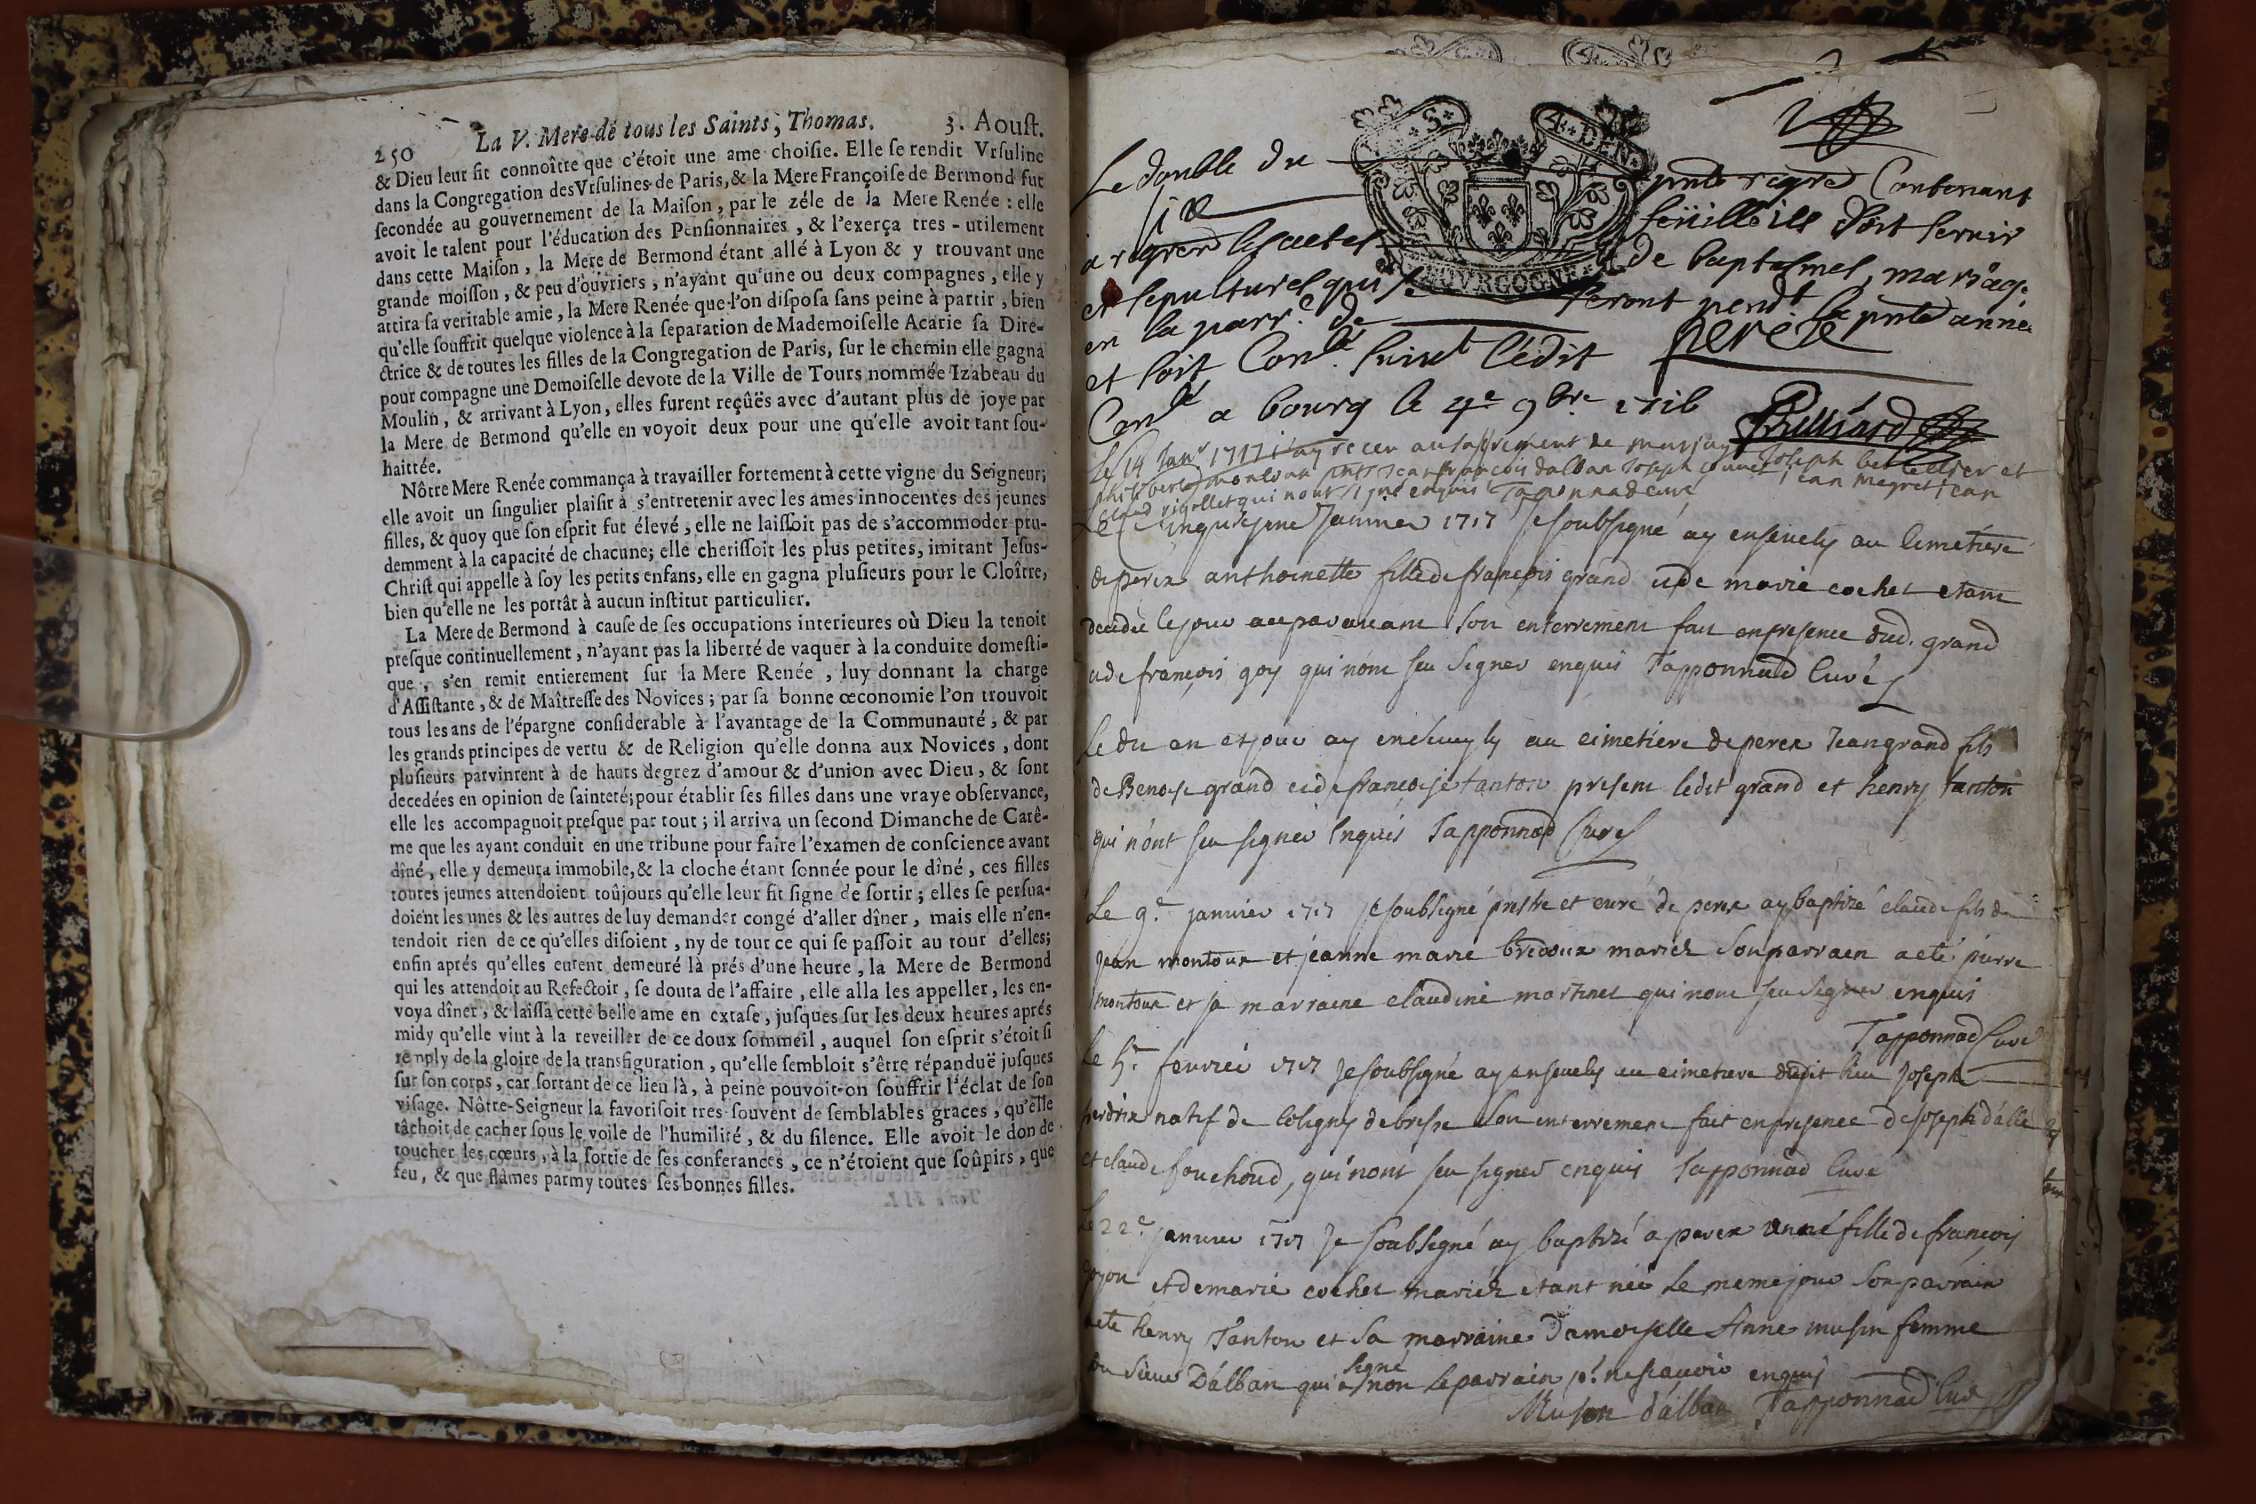 250 La V. Mere de tous les Saints, Thomas. 3. Aouſt.
& Dieu leur fit connoître que c'étoit une ame choiſie. Elle ſe rendit Vrſuline
dans la Congregation des Vrſulines de Paris, & la Mere Françoiſe de Bermond fut
ſecondée au gouvernement de la Maiſon, par le zéle de la Mere Renée : elle
avoit le talent pour l'éducation des Penſionnaires, & l'exerça tres-utilement
dans cette Maiſon, la Mere de Bermond étant allé à Lyon & y trouvant une
grande moiſſon, & peu d'ouvriers, n'ayant qu'une ou deux compagnes, elle y
attira ſa veritable amie, la Mere Renée que l'on diſpoſa ſans peine à partir, bien
qu'elle ſouffrit quelque violence à la ſeparation de Mademoiſelle Acarie ſa Dire-
ctrice & de toutes les filles de la Congregation de Paris, ſur le chemin elle gagna
pour compagne une Demoiſelle devote de la Ville de Tours nommée Izabeau du
Moulin, & arrivant à Lyon, elles furent reçûës avec d'autant plus de joye par
la Mere de Bermond qu'elle en voyoit deux pour une qu'elle avoit tant ſou-
haittée.
Nôtre Mere Renée commança à travailler fortement à cette vigne du Seigneur;
elle avoit un ſingulier plaiſir à s'entretenir avec les ames innocentes des jeunes
filles, & quoy que ſon eſprit fut élevé, elle ne laiſſoit pas de s'accommoder pru-
demment à la capacité de chacune; elle cheriſſoit les plus petites, imitant Jeſus-
Chriſt qui appelle à ſoy les petits enfans, elle en gagna pluſieurs pour le Cloître,
bien qu'elle ne les portât à aucun inſtitut particulier.
La Mere de Bermond à cauſe de ſes occupations interieures où Dieu la tenoit
preſque continuellement, n'ayant pas la liberté de vaquer à la conduite domeſti-
que, s'en remit entierement ſur la Mere Renée, luy donnant la charge
d'Aſſiſtante, & de Maîtreſſe des Novices; par ſa bonne œconomie l'on trouvoit
tous les ans de l'épargne conſiderable à l'avantage de la Communauté, & par
les grands principes de vertu & de Religion qu'elle donna aux Novices, dont
pluſieurs parvinrent à de hauts degrez d'amour & d'union avec Dieu, & ſont
decedées en opinion de ſainteté; pour établir ſes filles dans une vraye obſervance,
elle les accompagnoit preſque par tout; il arriva un ſecond Dimanche de Carê-
me que les ayant conduit en une tribune pour faire l'examen de conſcience avant
dîné, elle y demeura immobile, & la cloche étant ſonnée pour le dîné, ces filles
toutes jeunes attendoient toûjours qu'elle leur fit ſigne de ſortir; elles ſe perſua-
doient les unes & les autres de luy demander congé d'aller dîner, mais elle n'en-
tendoit rien de ce qu'elles diſoient, ny de tout ce qui ſe paſſoit au tour d'elles;
enfin aprés qu'elles eurent demeuré là prés d'une heure, la Mere de Bermond
qui les attendoit au Refectoir, ſe douta de l'affaire, elle alla les appeller, les en-
voya dîner, & laiſſa cette belle ame en extaſe, juſques ſur les deux heures aprés
midy qu'elle vint à la reveiller de ce doux ſommeil, auquel ſon eſprit s'étoit ſi
remply de la gloire de la transfiguration, qu'elle ſembloit s'être répanduë juſques
ſur ſon corps, car ſortant de ce lieu là, à peine pouvoit-on ſouffrir l'éclat de ſon
viſage. Nôtre-Seigneur la favoriſoit tres-ſouvent de ſemblables graces, qu'elle
tâchoit de cacher ſous le voile de l'humilité, & du ſilence. Elle avoit le don de
toucher les cœurs, à la ſortie de ſes conferances, ce n'étoient que ſoûpirs, que
feu, & que flâmes parmy toutes ses bonnes filles.
S. 4. DEN
BOVRGOGNE
Le double du pnt regre Contenant
six feüillets doit servir
a regrer les actes de baptesmes, mariag.
et sepultures qui se feront pend.t la pnte année
en la parr.e de perex
et soit Con.lé suiv.t l'edit
Con.lé a bourg le 4e 9bre 1716
Le 14 Janr 1717 j'ay receu au sacrement de mariage
philibert montoux Jean francois dalban Joseph Joseph berteltier et
Claud rigollet qui nont signé enquis Tapponnad curé Jean megret Jean
Le Cinquiesme Janvier 1717 Je soubsigné ay ensevely au cimetiere
de perex anthoinette fille de françois grand et de marie cochet etant
decedée le jour auparavant son enterrement fait en presence dud. grand
et de françois goy qui nont seu signer enquis Tapponnad Curé
Le du an et jour ay ensevely au cimetiere de perex Jean grand fils
de Benoist grand et de francoise tanton present ledit grand et henry tanton
qui nont seu signer Enquis Tapponnad Curé
Le 9.e janvier 1717 je soubsigné prestre et curé de perex ay baptizé claude fils de
jean montoux et jeanne marie bredoux mariez son parrain a eté pierre
montoux et sa marraine claudine martinet qui nont seu signer enquis
Tapponnad Curé
Le 5.e fevrier 1717 Je soubsigné ay ensevely au cimetiere dudit lieu Joseph
perdrix natif de Coligny de bresse son enterrement fait en presence de joseph dallé
et claude fouchoud, qui nont seu signer enquis Tapponnad Curé
Le 22.e janvier 1717 Je soubsigné ay baptizé a perex anné fille de françois
goyon et de marie cochet mariez etant née le meme jour son parrain
a eté henry Tanton et sa marraine Damoiselle Anne musin femme
du sieur Dalban qui a signé non le parrain p.r ne scavoir enquis
Musin dalban Tapponnad Curé